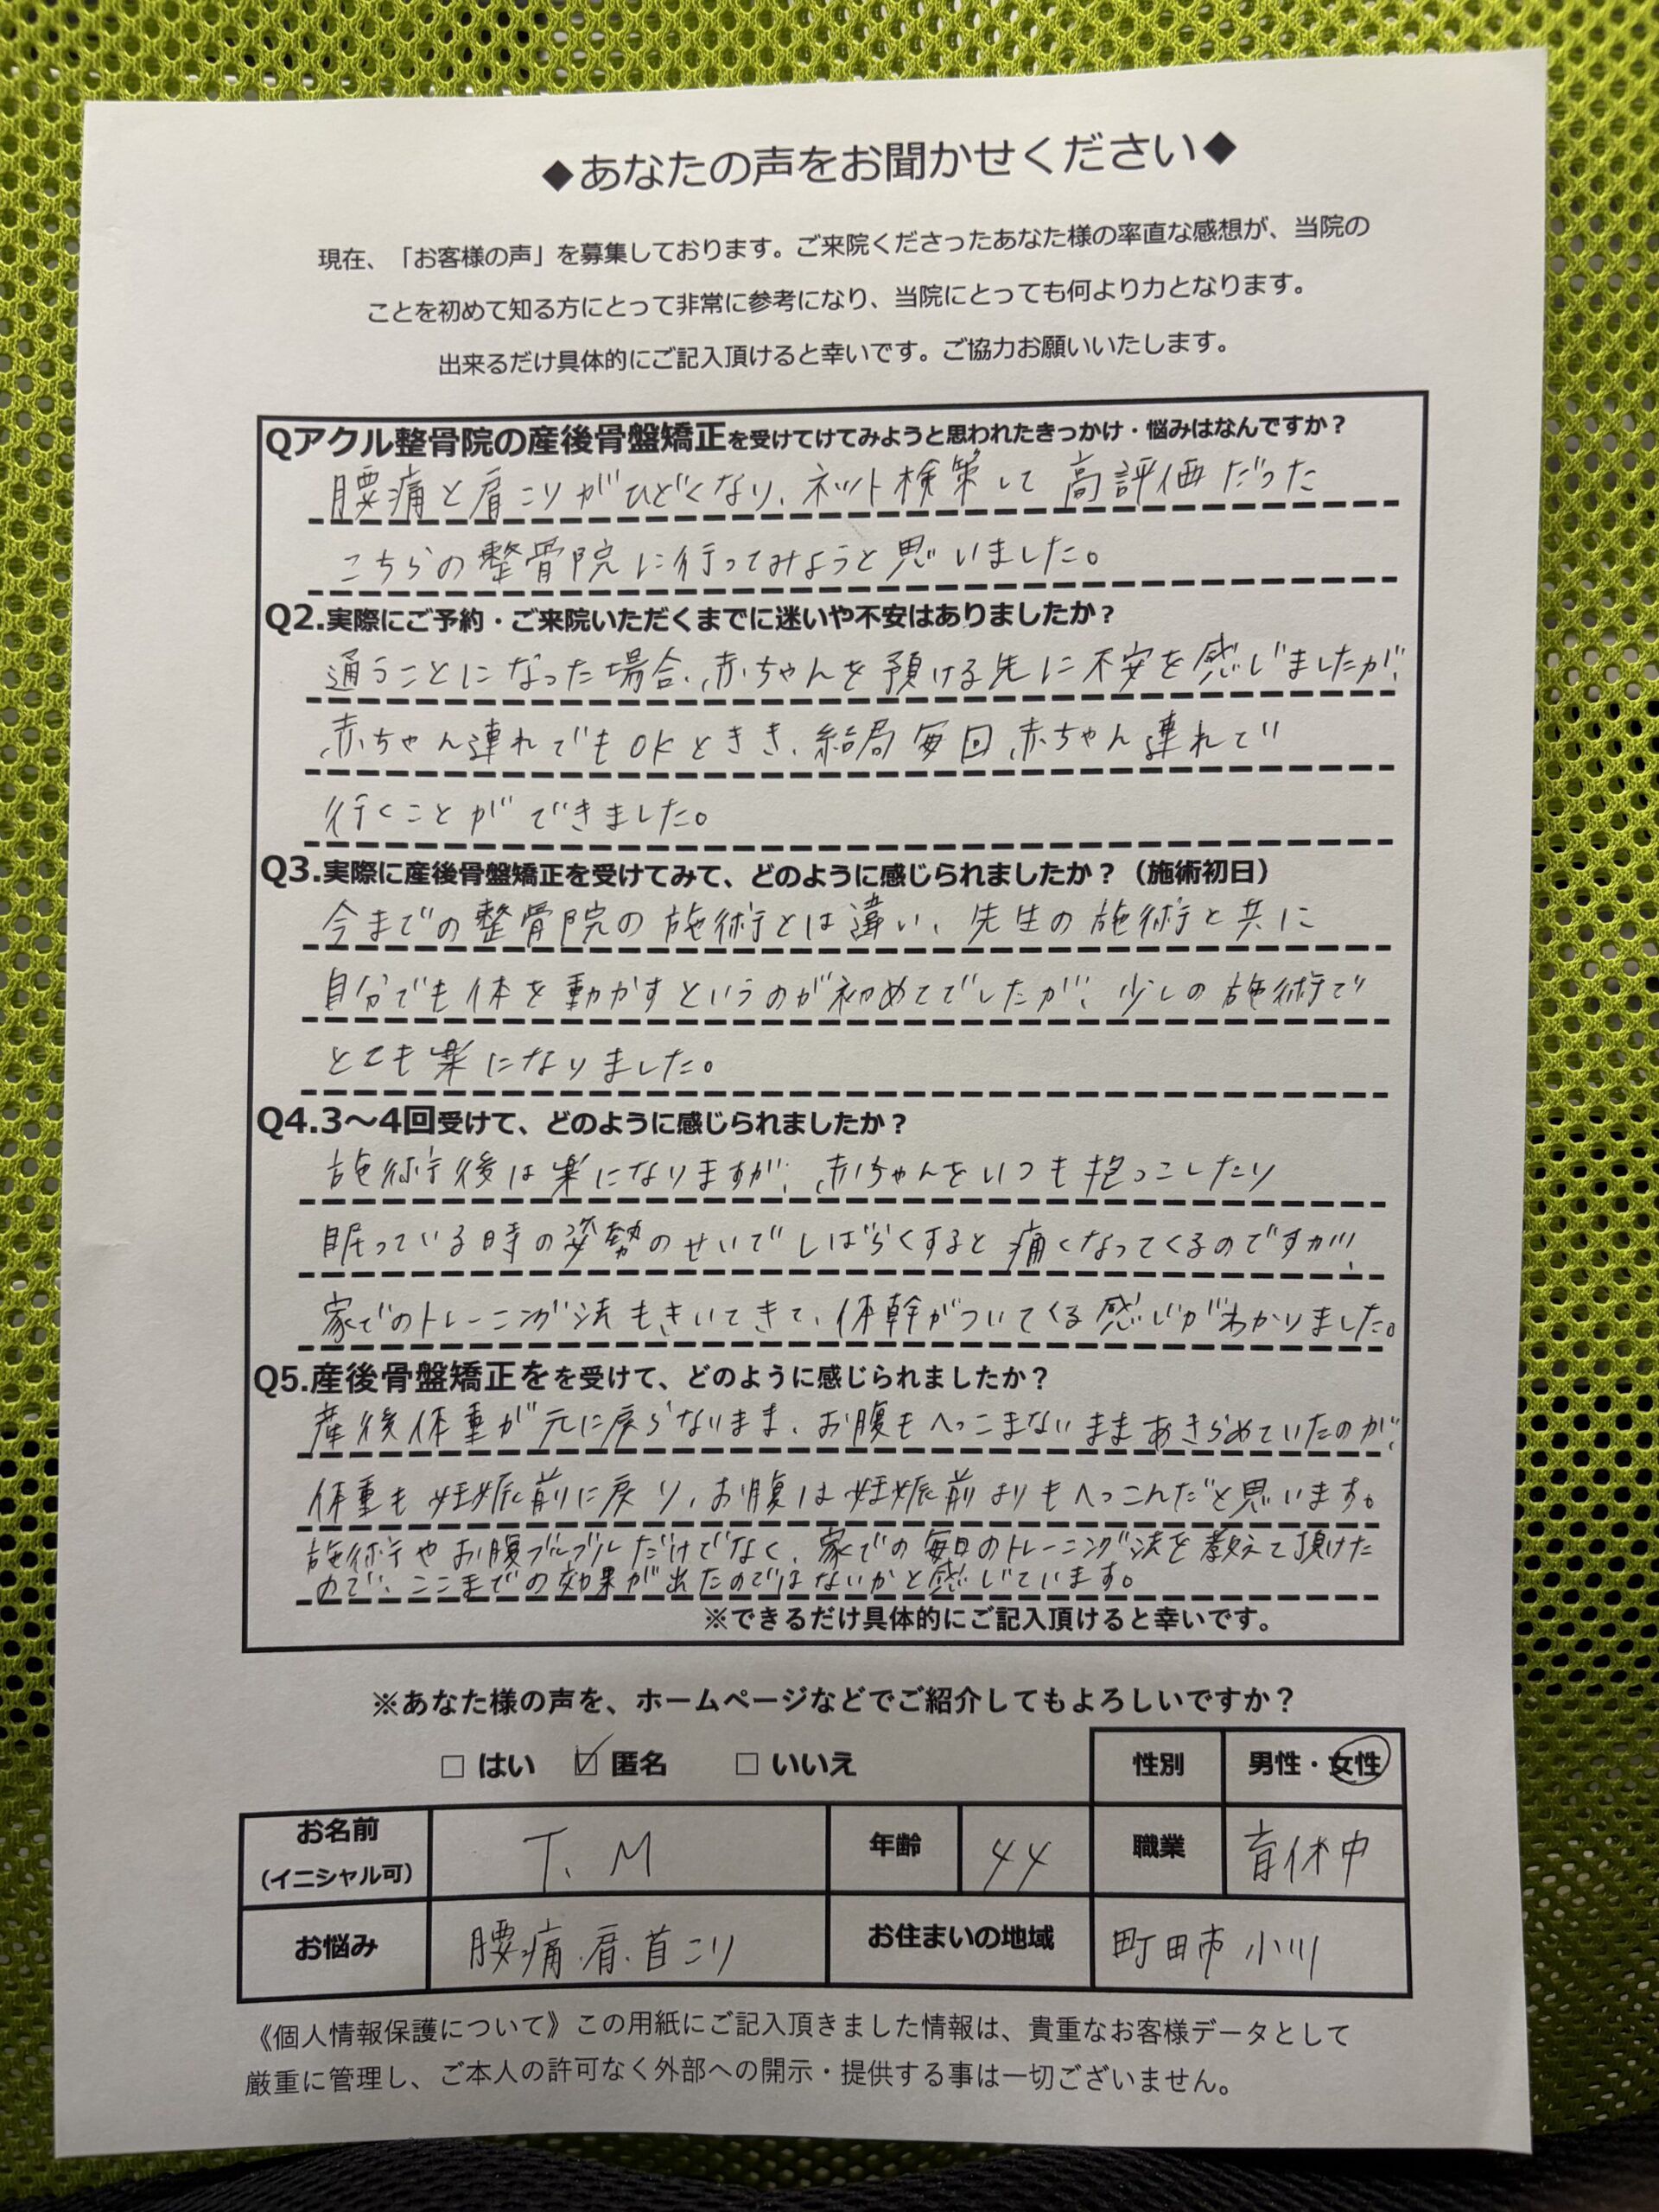 ◆あなたの声をお聞かせください◆
現在、「お客様の声」を募集しております。ご来院くださったあなた様の率直な感想が、当院の
ことを初めて知る方にとって非常に参考になり、当院にとっても何より力となります。
出来るだけ具体的にご記入頂けると幸いです。ご協力お願いいたします。
Qアクル整骨院の産後骨盤矯正を受けてけてみようと思われたきっかけ・悩みはなんですか？
腰痛と肩こりがひどくなり、ネット検策して高評価だった
こちらの整骨院に行ってみようと思いました。
Q2.実際にご予約・ご来院いただくまでに迷いや不安はありましたか？
通うことになった場合、赤ちゃんを預ける先に不安を感じましたが、
赤ちゃん連れでもOKときき、結局毎回赤ちゃん連れで
行くことができました。
Q3.実際に産後骨盤矯正を受けてみて、どのように感じられましたか？（施術初日）
今までの整骨院の施術とは違い、先生の施術と共に
自分でも体を動かすというのが初めてでしたが、少しの施術で
とても楽になりました。
Q4.3～4回受けて、どのように感じられましたか？
施術後は楽になりますが、赤ちゃんをいつも抱っこしたり
眠っている時の姿勢のせいでしばらくすると痛くなってくるのですが、
家でのトレーニング法もきいてきて、体幹がついてくる感じがわかりました。
Q5.産後骨盤矯正をを受けて、どのように感じられましたか？
産後体重が元に戻らないまま、お腹もへっこまないままあきらめていたのが、
体重も妊娠前に戻り、お腹は妊娠前よりもへっこんだと思います。
施術やお腹ブルブルだけでなく、家での毎日のトレーニング法を教えて頂けた
ので、ここまでの効果が出たのではないかと感じています。
※できるだけ具体的にご記入頂けると幸いです。
※あなた様の声を、ホームページなどでご紹介してもよろしいですか？
□ はい ☑ 匿名 □ いいえ 性別 男性・女性
お名前 （イニシャル可） T、M 年齢 44 職業 育休中
お悩み 腰痛・肩・首こり お住まいの地域 町田市小川
《個人情報保護について》この用紙にご記入頂きました情報は、貴重なお客様データとして
厳重に管理し、ご本人の許可なく外部への開示・提供する事は一切ございません。